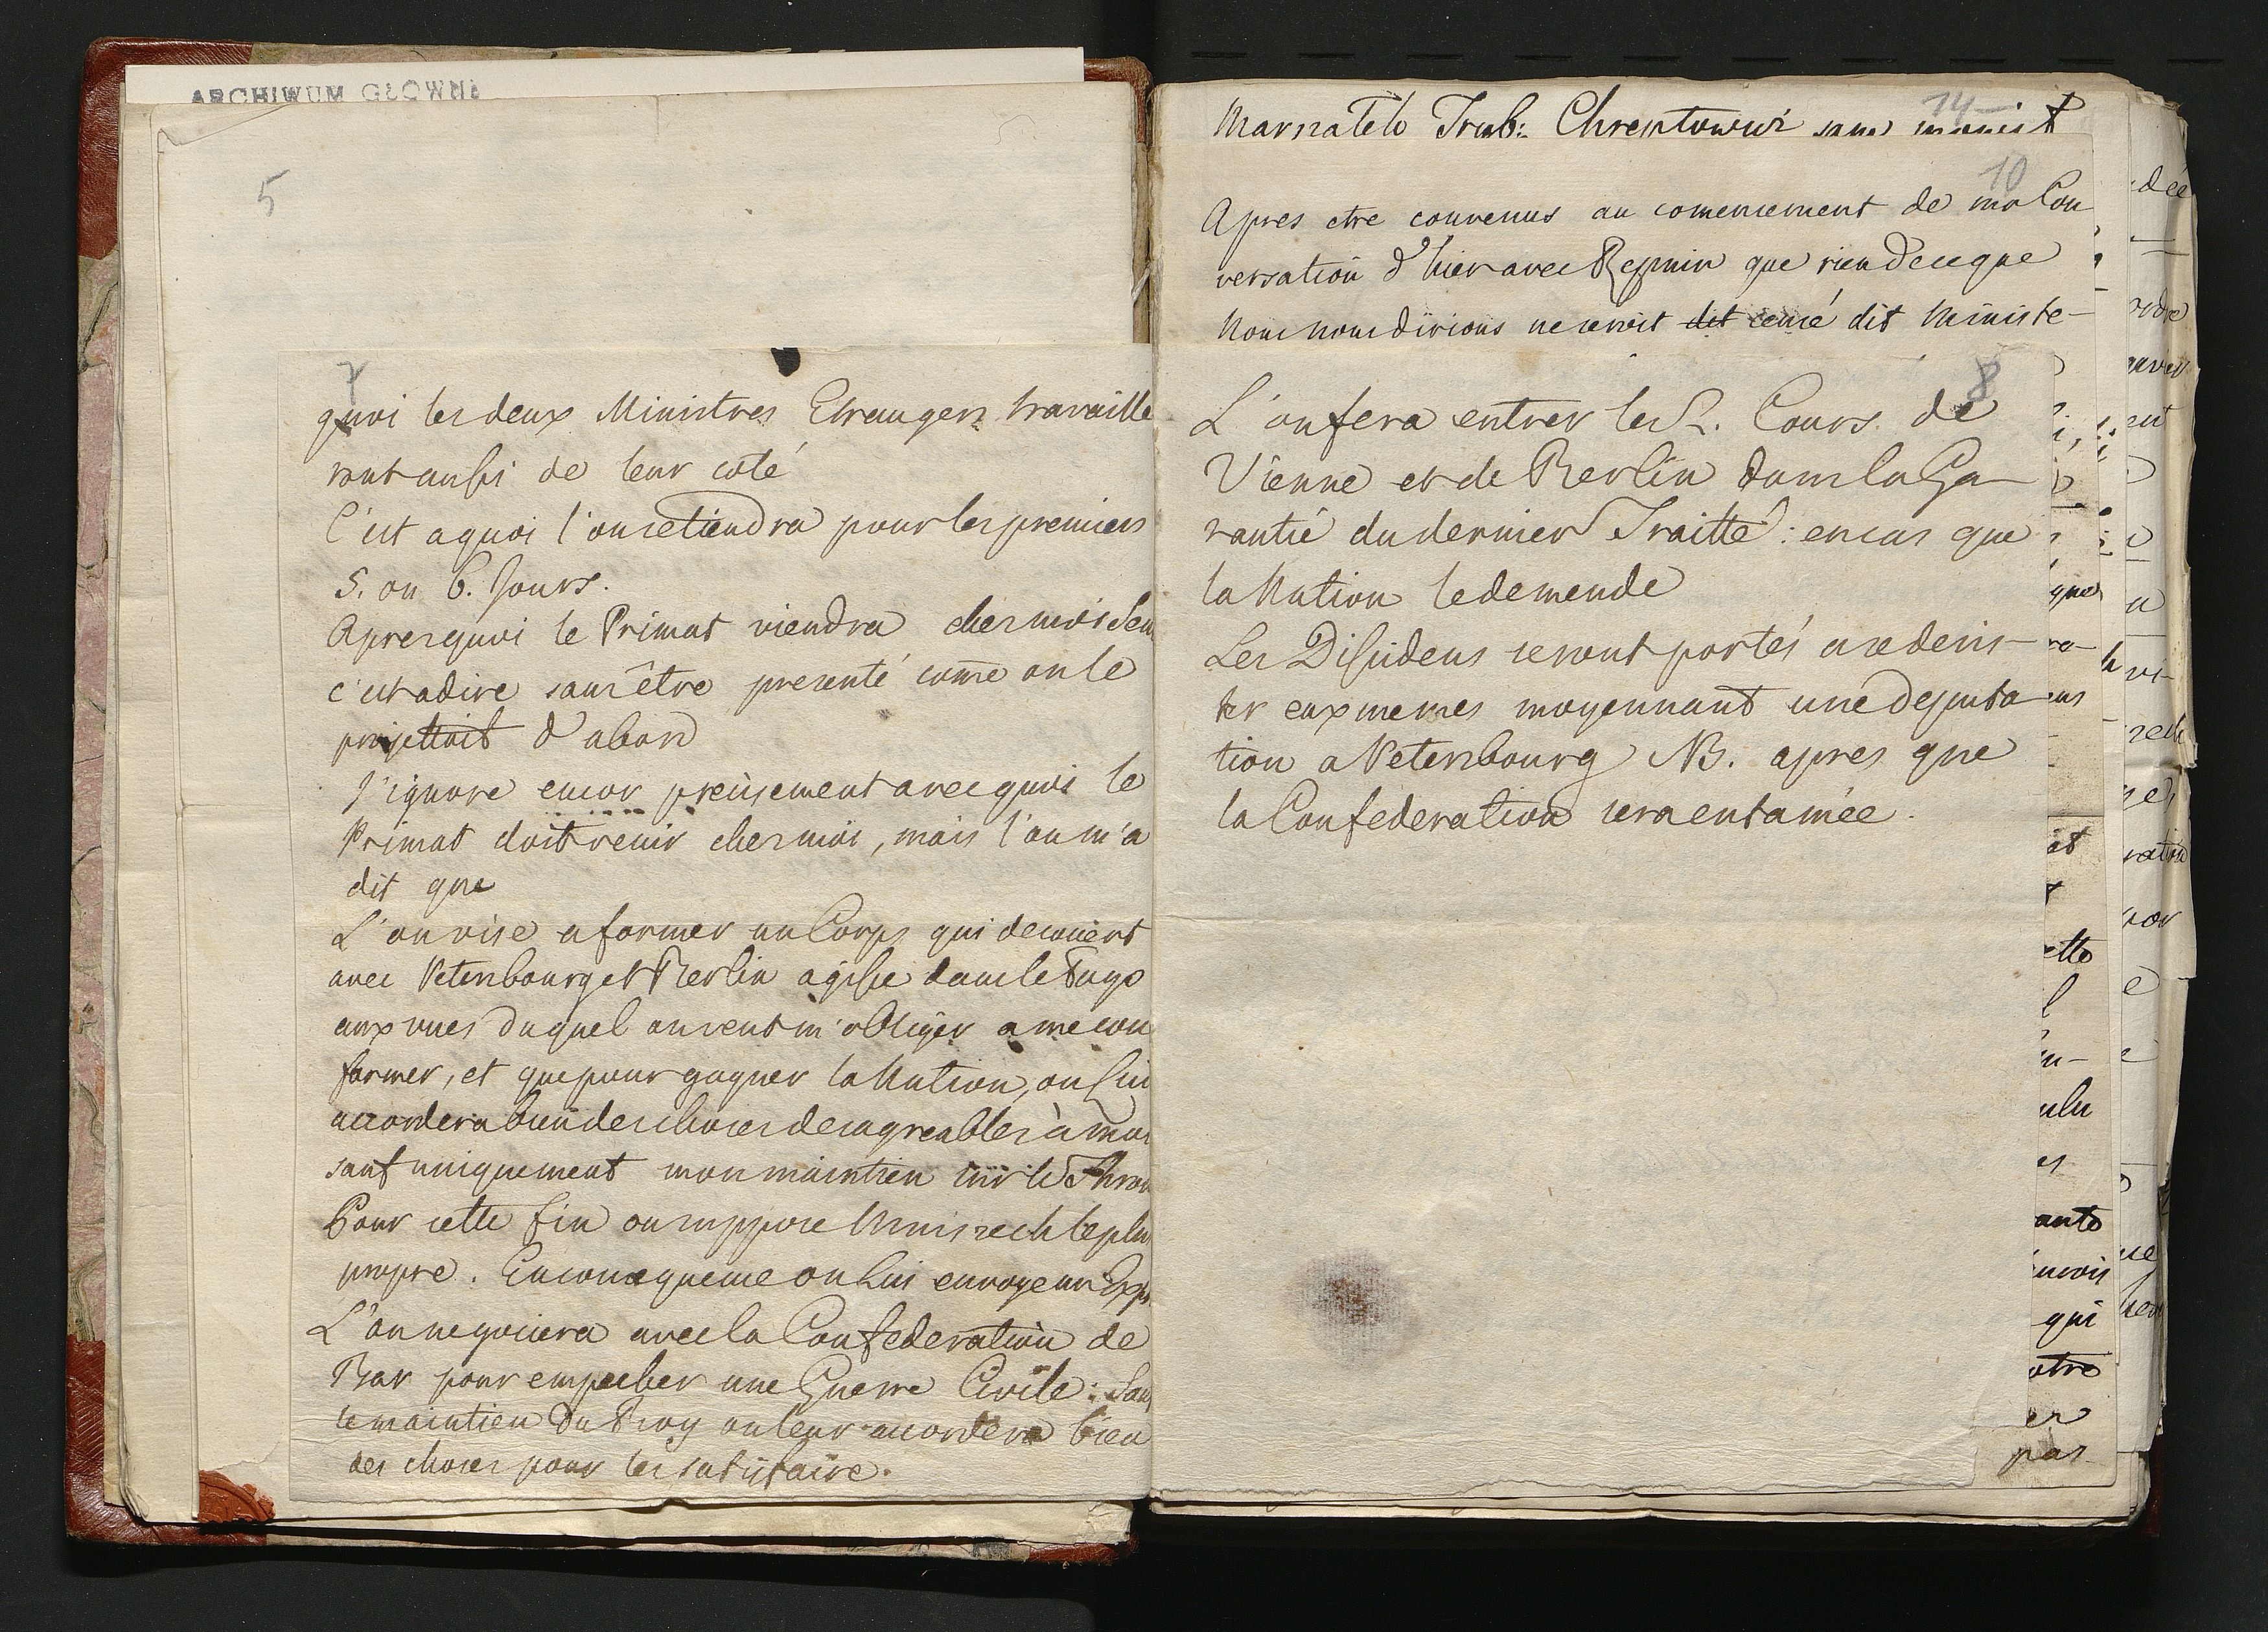 ARCHIWUM GŁOWNE
5
7
quoi les deux Ministres Etrangers travaille
ront aussi de leur coté
C'est a quoi l'on se tiendra pour les premiers
5. ou 6. Jours.
Apres quoi le Primat viendra chez moi Seu
c'est a dire sans être presenté come on le
projettoit d'abord
J'ignore encor precisement avec quoi le
Primat doit venir chez moi, mais l'on m'a
dit que
L'on vise a former un Corps qui de concert
avec Petersbourg et Berlin agisse dans le Pays
aux vues duquel on veut m'obliger a me con
former, et que pour gagner la Nation, on lui
accordera bien des choses desagreables à moi
sauf uniquement mon maintien sur le Thron
Pour cette fin on suppose Mniszech le plus
propre. En consequence on lui envoye un Exp
L'on negociera avec la Confederation de
Bar pour empecher une Guerre Civile: Sauf
le maintien du Roy on leur accordera bien
des choses pour les satisfaire.
14
Marszatek Trub: Chreptowicz sans
10
Apres etre convenus au comencement de ma Con
versation d'hier avec Repnin que rien de ce que
Nous nous dirions ne seroit dit censé dit Ministe-
8
L'on fera entrer les 2. Cours de
Vienne et de Berlin dans la Ga-
rantie du dernier Traitté: en cas que
la Nation le demende
Les Dissidens seront portés a se desis-
ter eux memes moyennant une deputa-
tion a Petersbourg NB. apres que
la Confederation sera entamée.
que
etto
qui
pas